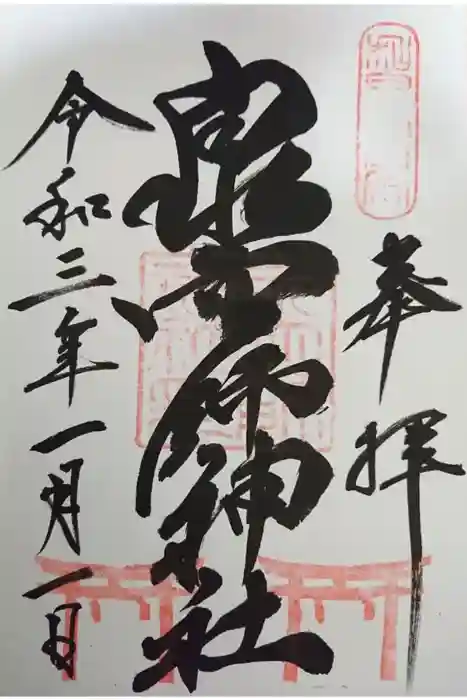 奉拝
師神社
令和三年一月一日